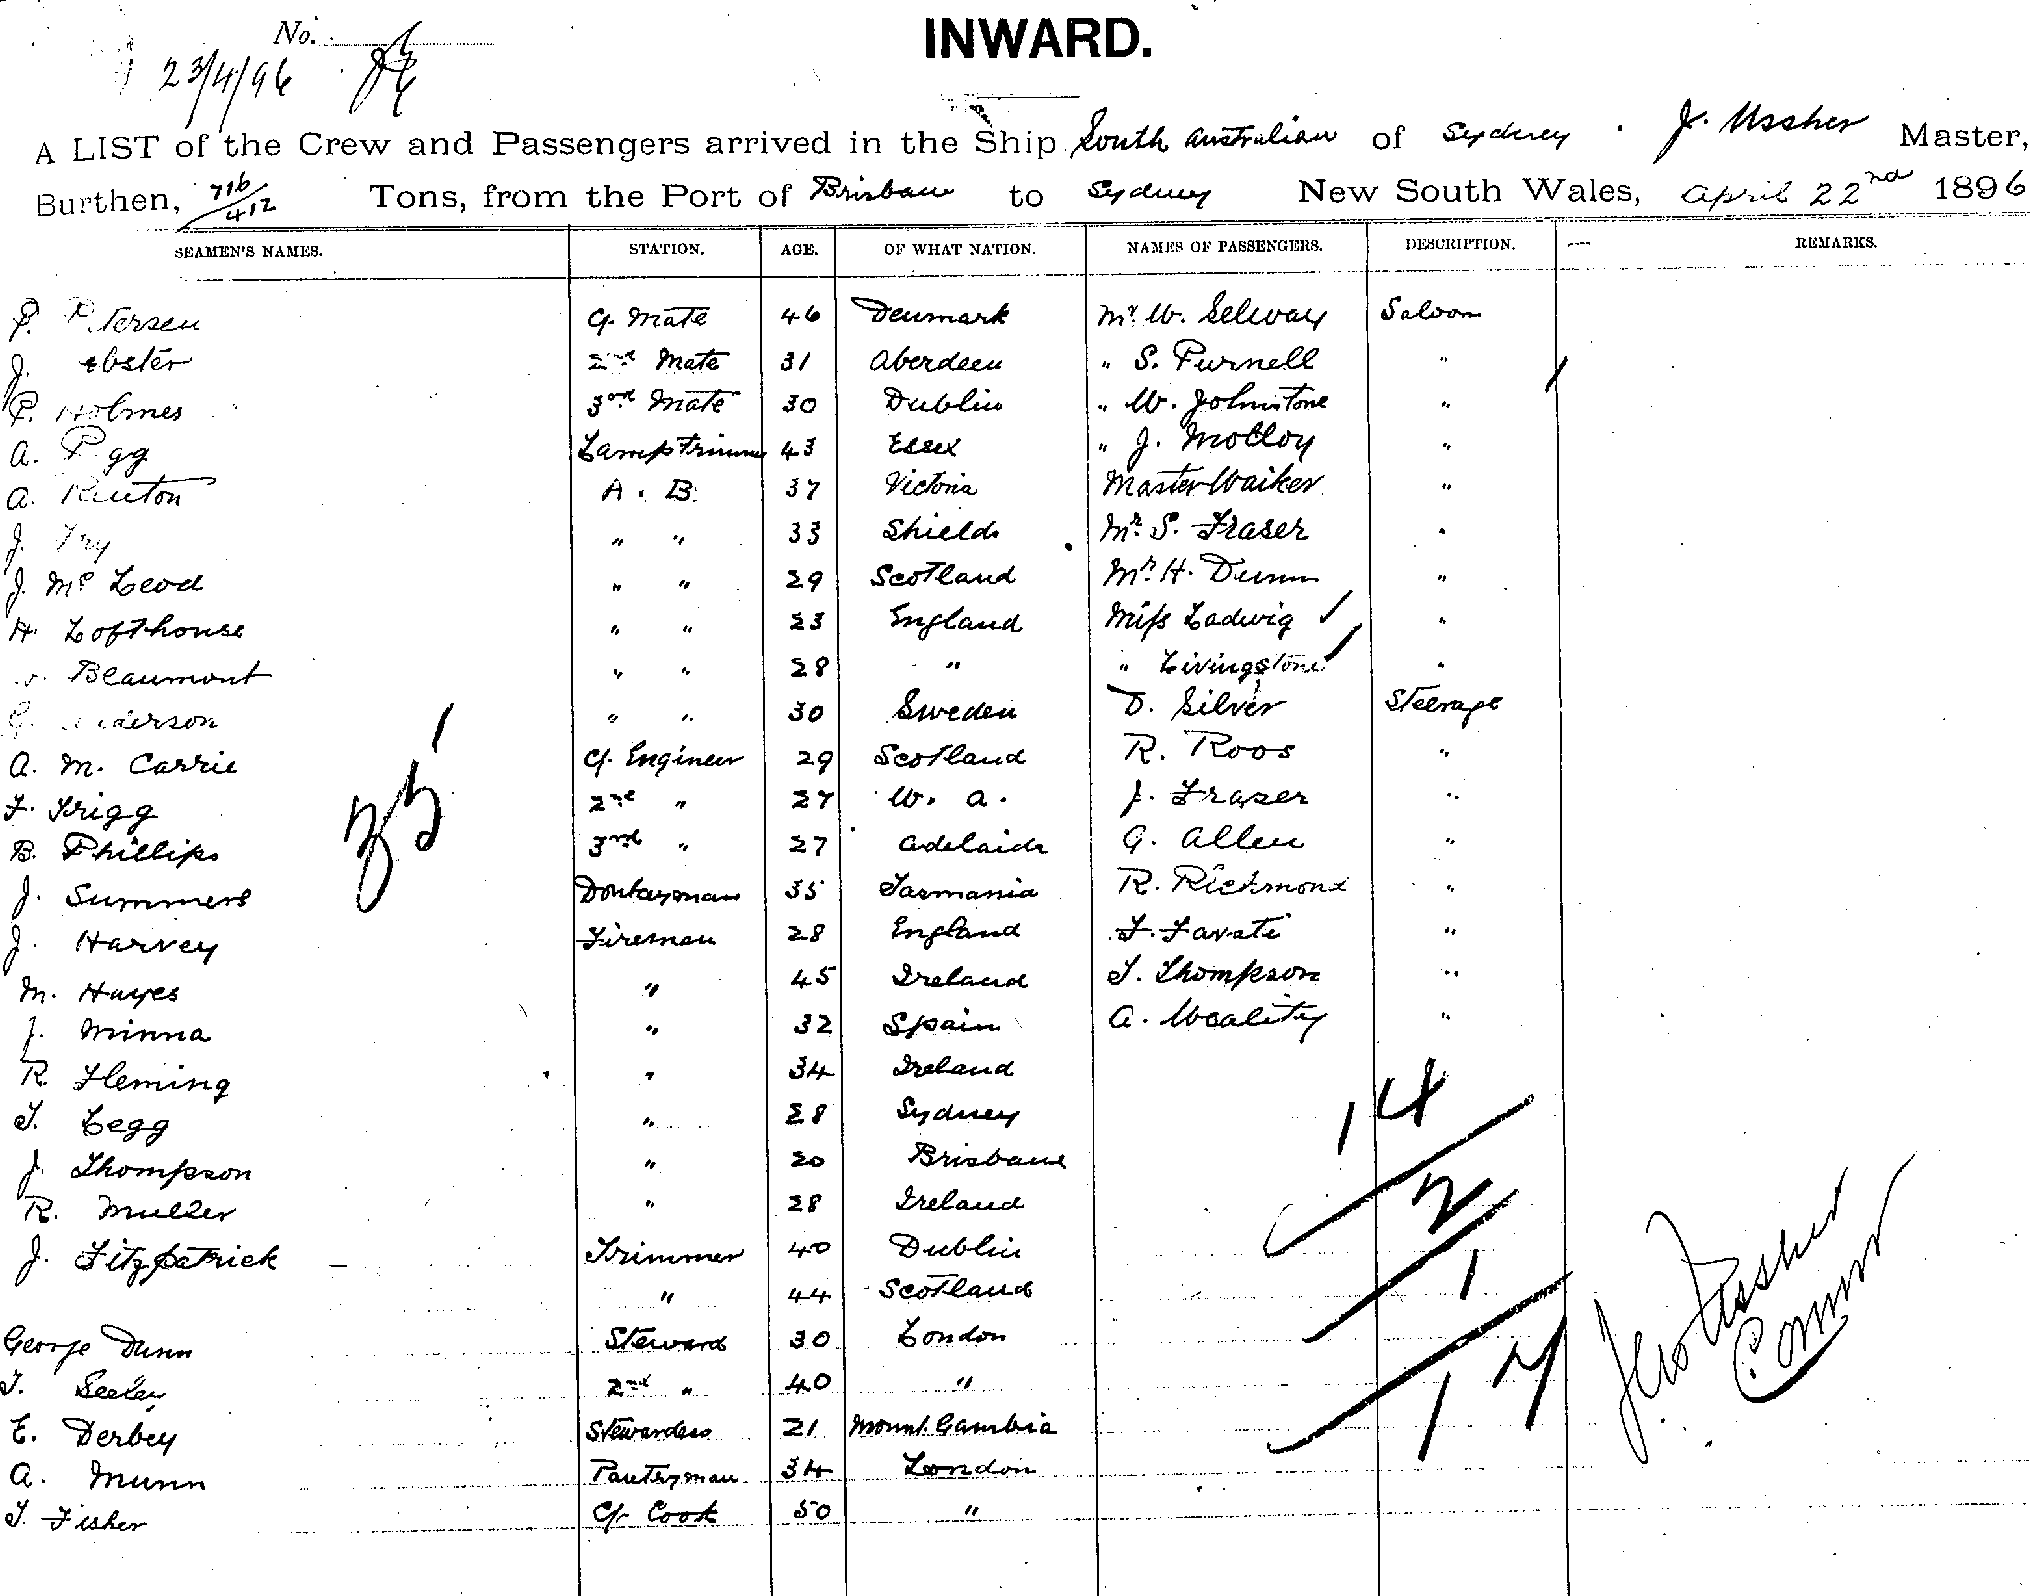 No.
23/4/96
INWARD.
A LIST of the Crew and Passengers arrived in the Ship South Australian of Sydney . J. Ussher Master,
Burthen, 716/412 Tons, from the Port of Brisbane to Sydney New South Wales, April 22nd 1896
SEAMEN'S NAMES. STATION. AGE. OF WHAT NATION. NAMES OF PASSENGERS. DESCRIPTION. REMARKS.
P. Petersen C/. Mate 46 Denmark Mr. W. Selway Saloon
J. ebster 2nd Mate 31 Aberdeen " S. Purnell "
P. Holmes 3rd Mate 30 Dublin " W. Johnstone "
A. P gg Lamp Trimmer 43 Essex " J. Molloy "
A. Renton A. B. 37 Victoria Master Walker "
J. Fry " " 33 Shields Mr. S. Fraser "
J. Mc Leod " " 29 Scotland Mr. H. Dunn "
H. Lofthouse " " 23 England Miss Ladwig "
Beaumont " " 28 " " Livingstone "
derson " " 30 Sweden D. Silver Steerage
A. M. Carrie C/. Engineer 29 Scotland R. Roos "
F. Trigg 2nd " 27 W. A. J. Frazer "
B. Phillips 3rd " 27 Adelaide G. Allen "
J. Summers Donkeyman 35 Tasmania R. Richmond "
J. Harvey Fireman 28 England F. Favati "
M. Hayes " 45 Ireland T. Thompson "
J. Minna " 32 Spain A. "
R. Fleming " 34 Ireland
T. Legg " 28 Sydney
J. Thompson " 20 Brisbane
R. Muller " 28 Ireland
J. Fitzpatrick Trimmer 40 Dublin
" 44 Scotland
George Dunn Steward 30 London
T. Seeley 2nd " 40 "
E. Derbey Stewardess 21 Mount Gambia
A. Munn Pantryman 34 London
T. Fisher C/. Cook 50 "
35
14
2
1
17
Jno Ussher
Comm